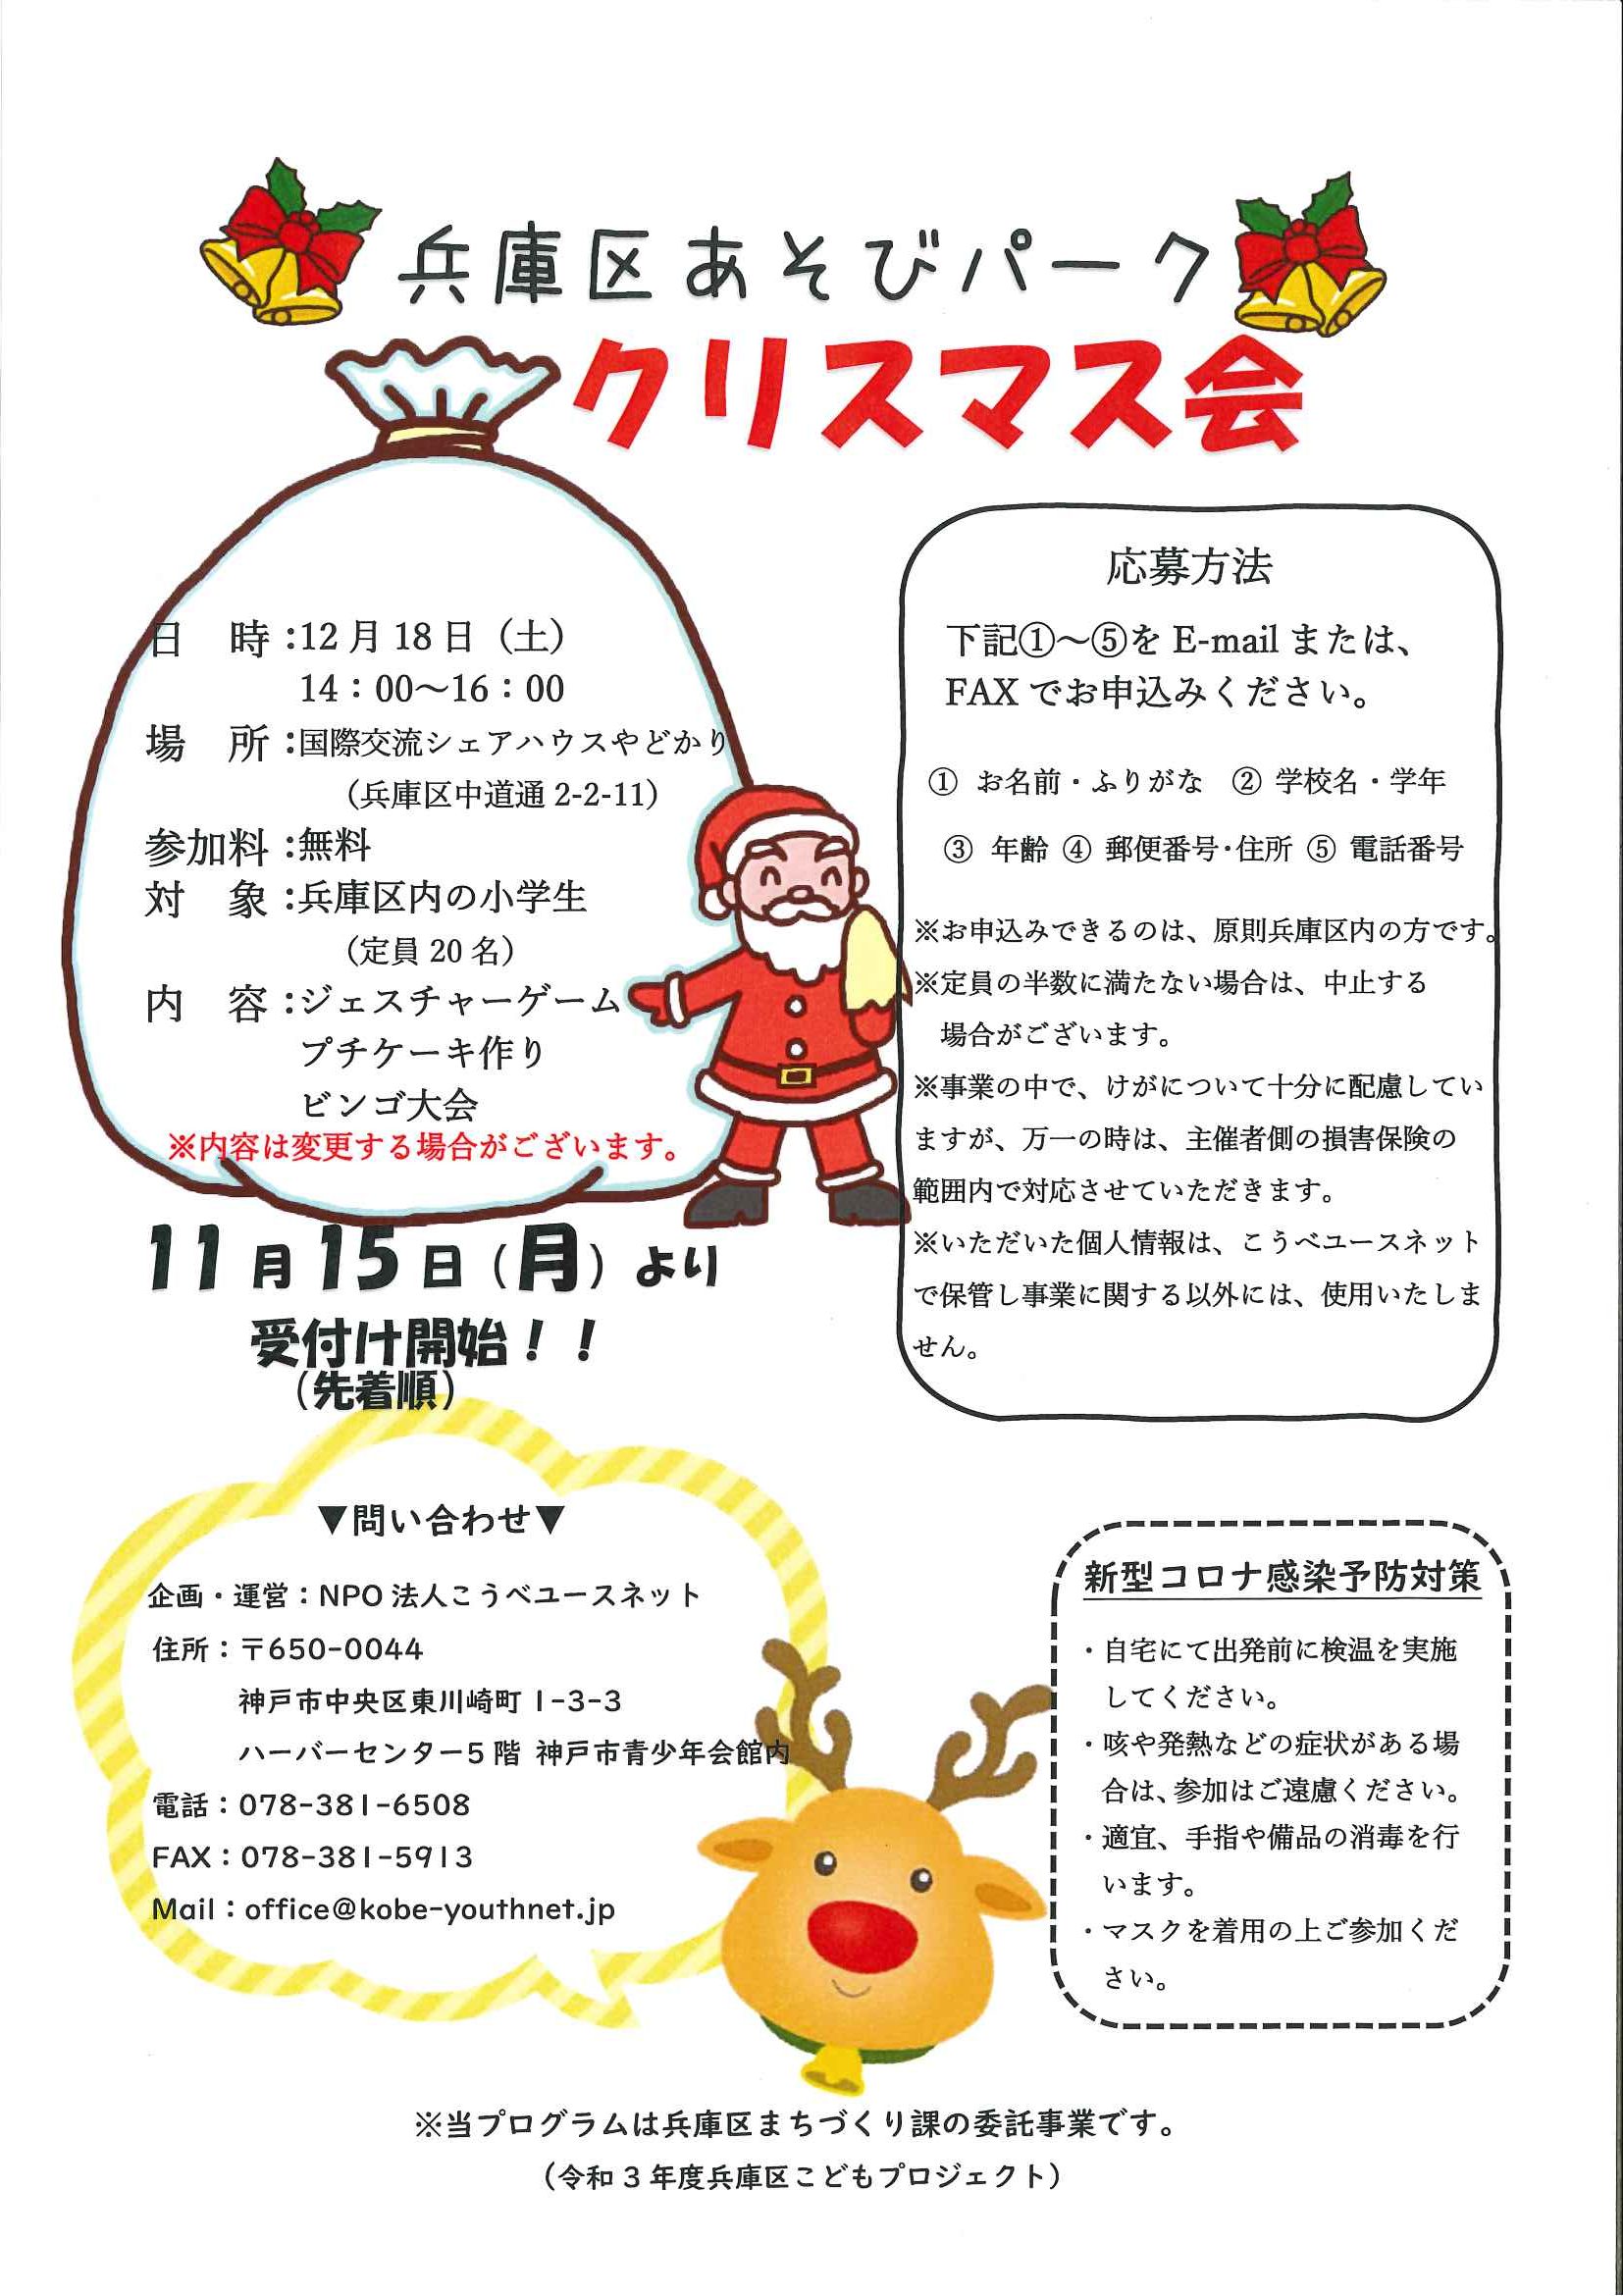 兵庫区あそびパーク
クリスマス会
日　時：12月18日（土）
14：00～16：00
場　所：国際交流シェアハウスやどかり
（兵庫区中道通2-2-11）
参加料：無料
対　象：兵庫区内の小学生
（定員20名）
内　容：ジェスチャーゲーム
プチケーキ作り
ビンゴ大会
※内容は変更する場合がございます。
11月15日（月）より
受付け開始！！
（先着順）
応募方法
下記①～⑤をE-mailまたは、
FAXでお申込みください。
① お名前・ふりがな ② 学校名・学年
③ 年齢 ④ 郵便番号・住所 ⑤ 電話番号
※お申込みできるのは、原則兵庫区内の方です。
※定員の半数に満たない場合は、中止する
場合がございます。
※事業の中で、けがについて十分に配慮してい
ますが、万一の時は、主催者側の損害保険の
範囲内で対応させていただきます。
※いただいた個人情報は、こうべユースネット
で保管し事業に関する以外には、使用いたしま
せん。
▼問い合わせ▼
企画・運営：NPO法人こうべユースネット
住所：〒650-0044
神戸市中央区東川崎町1-3-3
ハーバーセンター5階 神戸市青少年会館内
電話：078-381-6508
FAX：078-381-5913
Mail：office@kobe-youthnet.jp
新型コロナ感染予防対策
・自宅にて出発前に検温を実施
してください。
・咳や発熱などの症状がある場
合は、参加はご遠慮ください。
・適宜、手指や備品の消毒を行
います。
・マスクを着用の上ご参加くだ
さい。
※当プログラムは兵庫区まちづくり課の委託事業です。
（令和3年度兵庫区こどもプロジェクト）